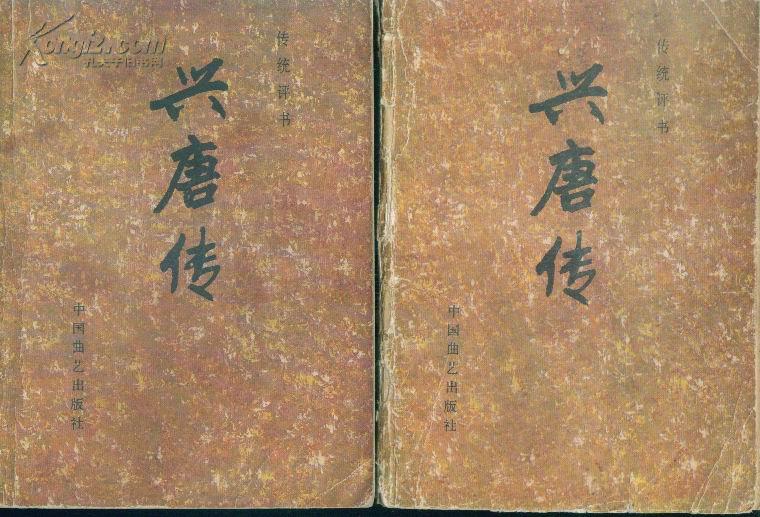 Kongfz.com
孔夫子旧书网
传统评书
兴唐传
中国曲艺出版社
传统评书
兴唐传
中国曲艺出版社